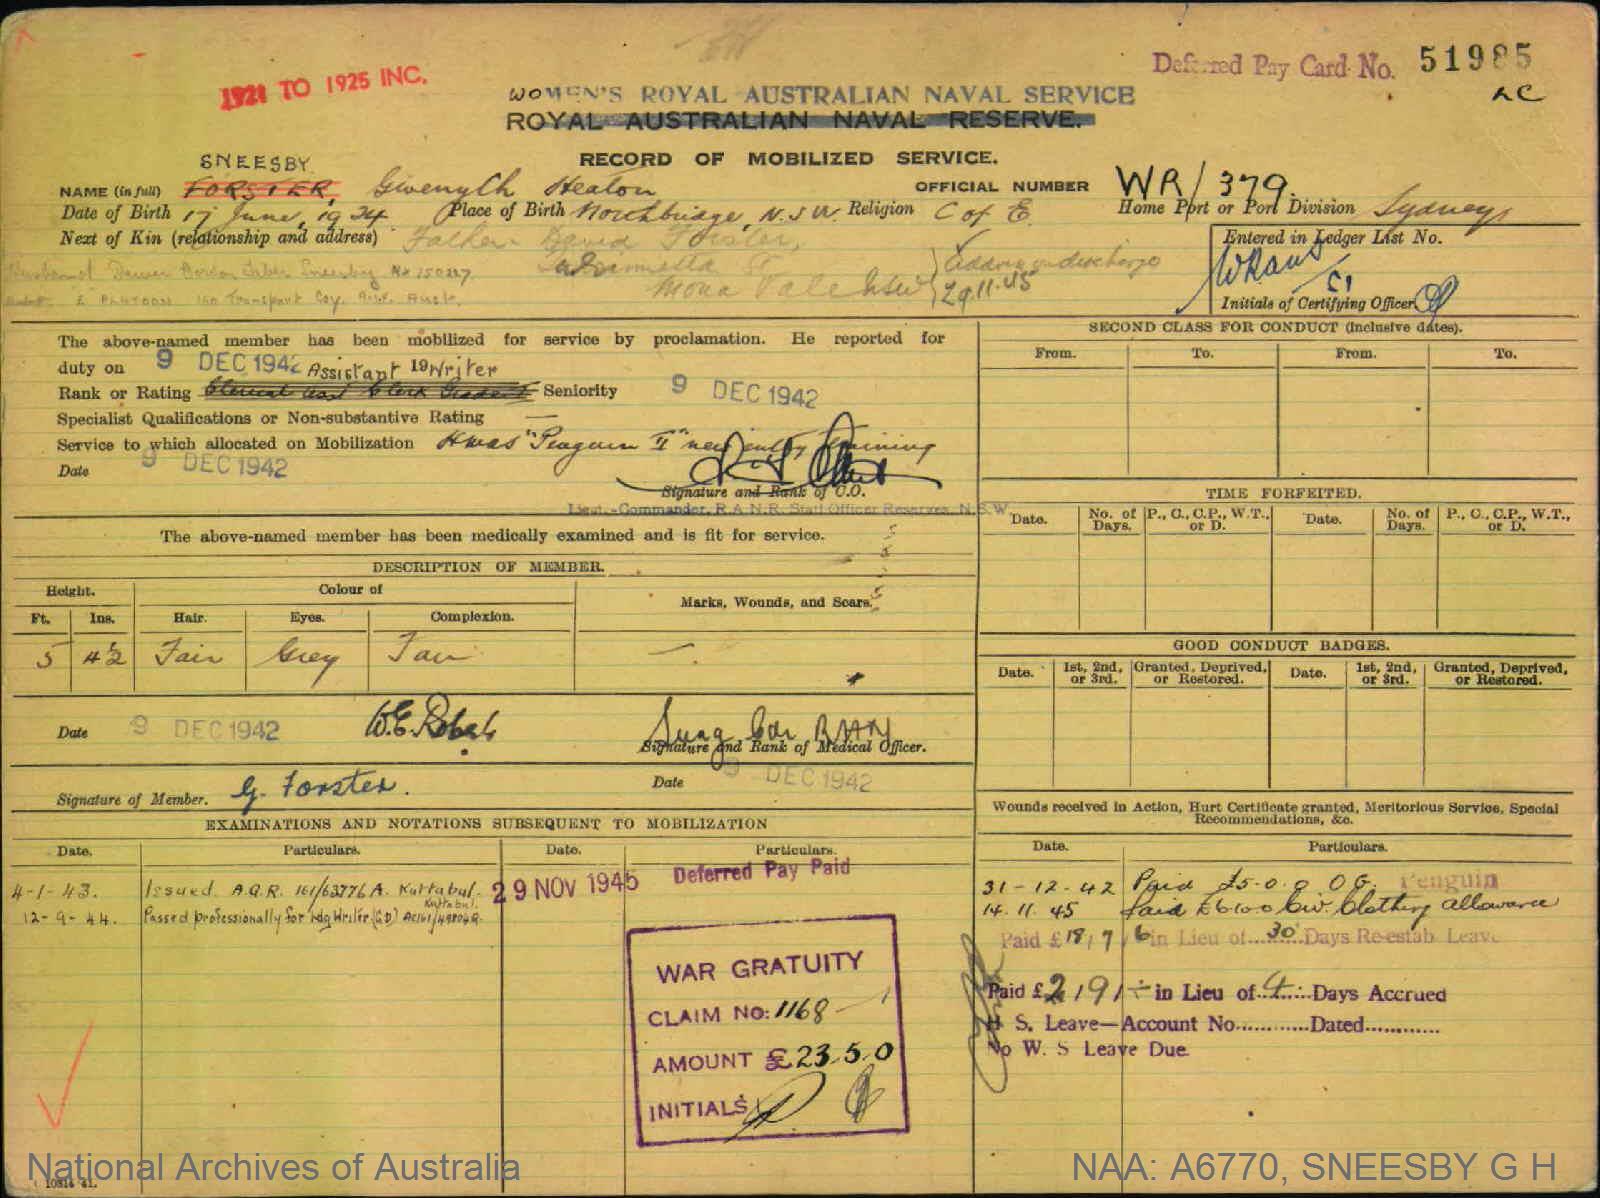 Deferred Pay Card No. 51985
1921 TO 1925 INC.
WOMEN'S ROYAL AUSTRALIAN NAVAL SERVICE
ROYAL AUSTRALIAN NAVAL RESERVE.
RECORD OF MOBILIZED SERVICE.
SNEESBY
NAME (in full) FORSTER, Gwenyth Heaton OFFICIAL NUMBER WR/379.
Date of Birth 17 June, 1924 Place of Birth Northbridge, N.S.W. Religion C of E Home Port or Port Division Sydney
Next of Kin (relationship and address) Father David Forster,
Mona Vale NSW
Address on discharge
29.11.45
Husband Sneesby
PLATOON Transport Coy.
Entered in Ledger List No.
WRANS
Initials of Certifying Officer
The above-named member has been mobilized for service by proclamation. He reported for
duty on 9 DEC 1942 19
Assistant Writer
Rank or Rating Seniority 9 DEC 1942
Specialist Qualifications or Non-substantive Rating —
Service to which allocated on Mobilization HMAS "Penguin II" new entry training
Date 9 DEC 1942
Signature and Rank of C.O.
Lieut.-Commander, R.A.N.R. Staff Officer Reserves, N.S.W.
The above-named member has been medically examined and is fit for service.
DESCRIPTION OF MEMBER.
Height. Colour of Marks, Wounds, and Scars.
Ft. Ins. Hair. Eyes. Complexion.
5 4½ Fair Grey Fair —
Date 9 DEC 1942 Surg Cdr RAN
Signature and Rank of Medical Officer.
Date 9 DEC 1942
Signature of Member. G. Forster.
EXAMINATIONS AND NOTATIONS SUBSEQUENT TO MOBILIZATION
Date. Particulars. Date. Particulars.
4-1-43. Issued A.G.R. 161/63776A. Kuttabul.
Kuttabul.
12-9-44. Passed professionally for Ldg Writer
29 NOV 1945 Deferred Pay Paid
WAR GRATUITY
CLAIM NO: 1168
AMOUNT £23.5.0
INITIALS
SECOND CLASS FOR CONDUCT (inclusive dates).
From. To. From. To.
TIME FORFEITED.
Date. No. of Days. P., C., C.P., W.T., or D. Date. No. of Days. P., C., C.P., W.T., or D.
GOOD CONDUCT BADGES.
Date. 1st, 2nd, or 3rd. Granted, Deprived, or Restored. Date. 1st, 2nd, or 3rd. Granted, Deprived, or Restored.
Wounds received in Action, Hurt Certificate granted, Meritorious Service, Special
Recommendations, &c.
Date. Particulars.
31-12-42 Paid £5.0.0 O.G. Penguin
14.11.45 Paid £6.10.0 Civ. Clothing allowance
Paid £18/7/6 in Lieu of 30 Days Re-estab Leave
Paid £2/9/- in Lieu of 4 Days Accrued
H S. Leave—Account No............Dated............
No W. S Leave Due.
National Archives of Australia
NAA: A6770, SNEESBY G H